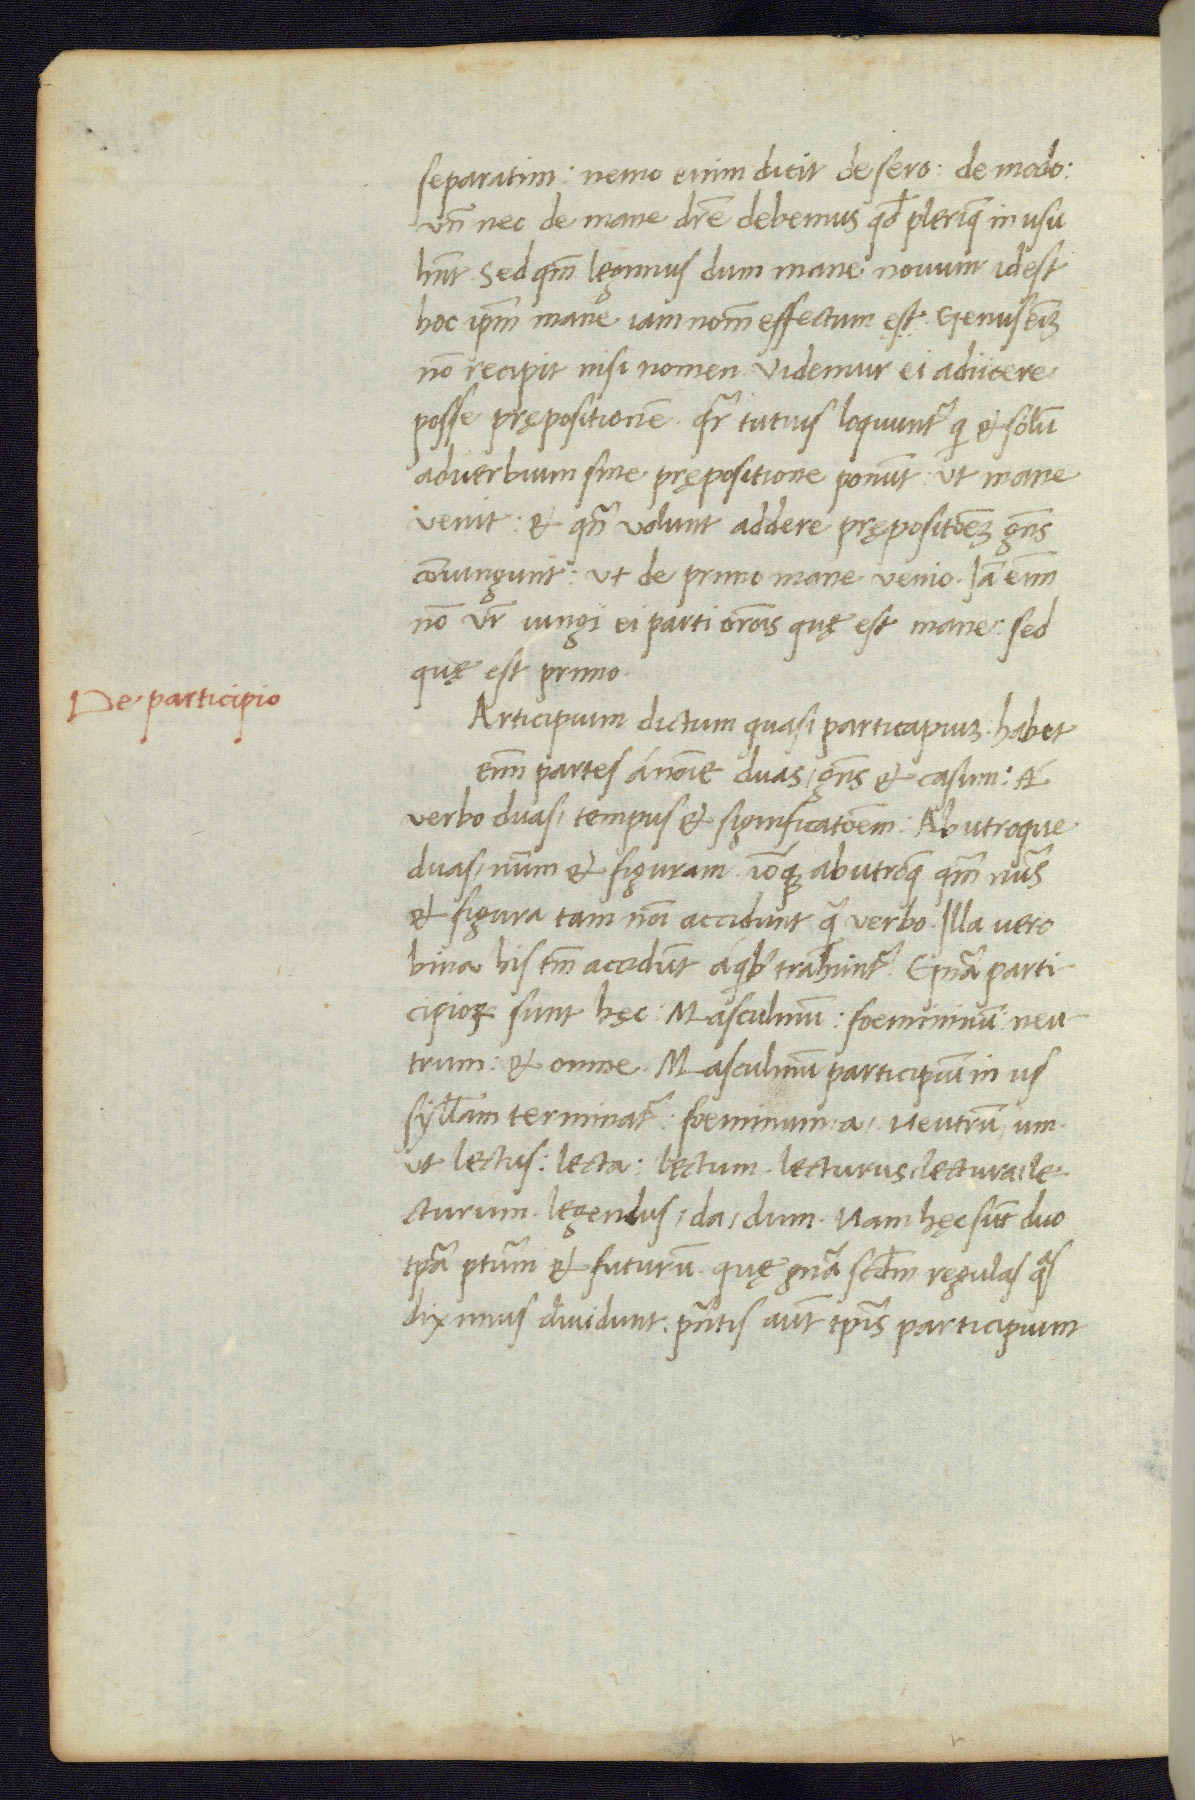 separatim: nemo enim dicit de sero: de modo:
vñ nec de mane dr̃e debemus qđ pleriq̃ in usu
hñt. Sed qm̃ legimus dum mane novum idest
hoc ip̃m mane iam nom̃ effectum est. Genus eiꝫ
nõ recipit nisi nomen. Videmur ei adiicere
posse prępositionẽ. qr̃ tutius loquunt᷑ qi & solũ
adverbium sine prępositione ponũt: ut mane
venit: & qñ volunt addere prępositõeꝫ gñs
coniungunt: ut de primo mane venio. Iã enim
nõ vr̃ iungi ei parti or̃onis quę est mane: sed
quę est primo.
De participio
Articipium dictum quasi particapiuꝫ. habet
enim partes á noĩe duas, gñs & casum: A
verbo duas, tempus & significatõem: Ab utroque
duas, num̃ & figuram. iõqꝫ ab utroq̃ qm̃ nũs
& figura tam noĩ accidunt q̃ verbo. Illa vero
bina his tm̃ accidũt á qb᷒ trahũnt᷑. Gñã parti
cipioꝝ sunt hęc: Masculinũ: foemininũ: neu
trum: & omne. Masculinũ participiũ in us
syll̃am terminat᷑: foemininum, a, neutrũ, um.
ut lectus: lecta: lectum. lecturus, lectura, le
cturum. legendus, da, dum. Nam hęc sũt duo
tp̃a pt̃um & futurũ. quę gñã scđm regulas q̃s
diximus dividunt. pñtis aũt tp̃is participium